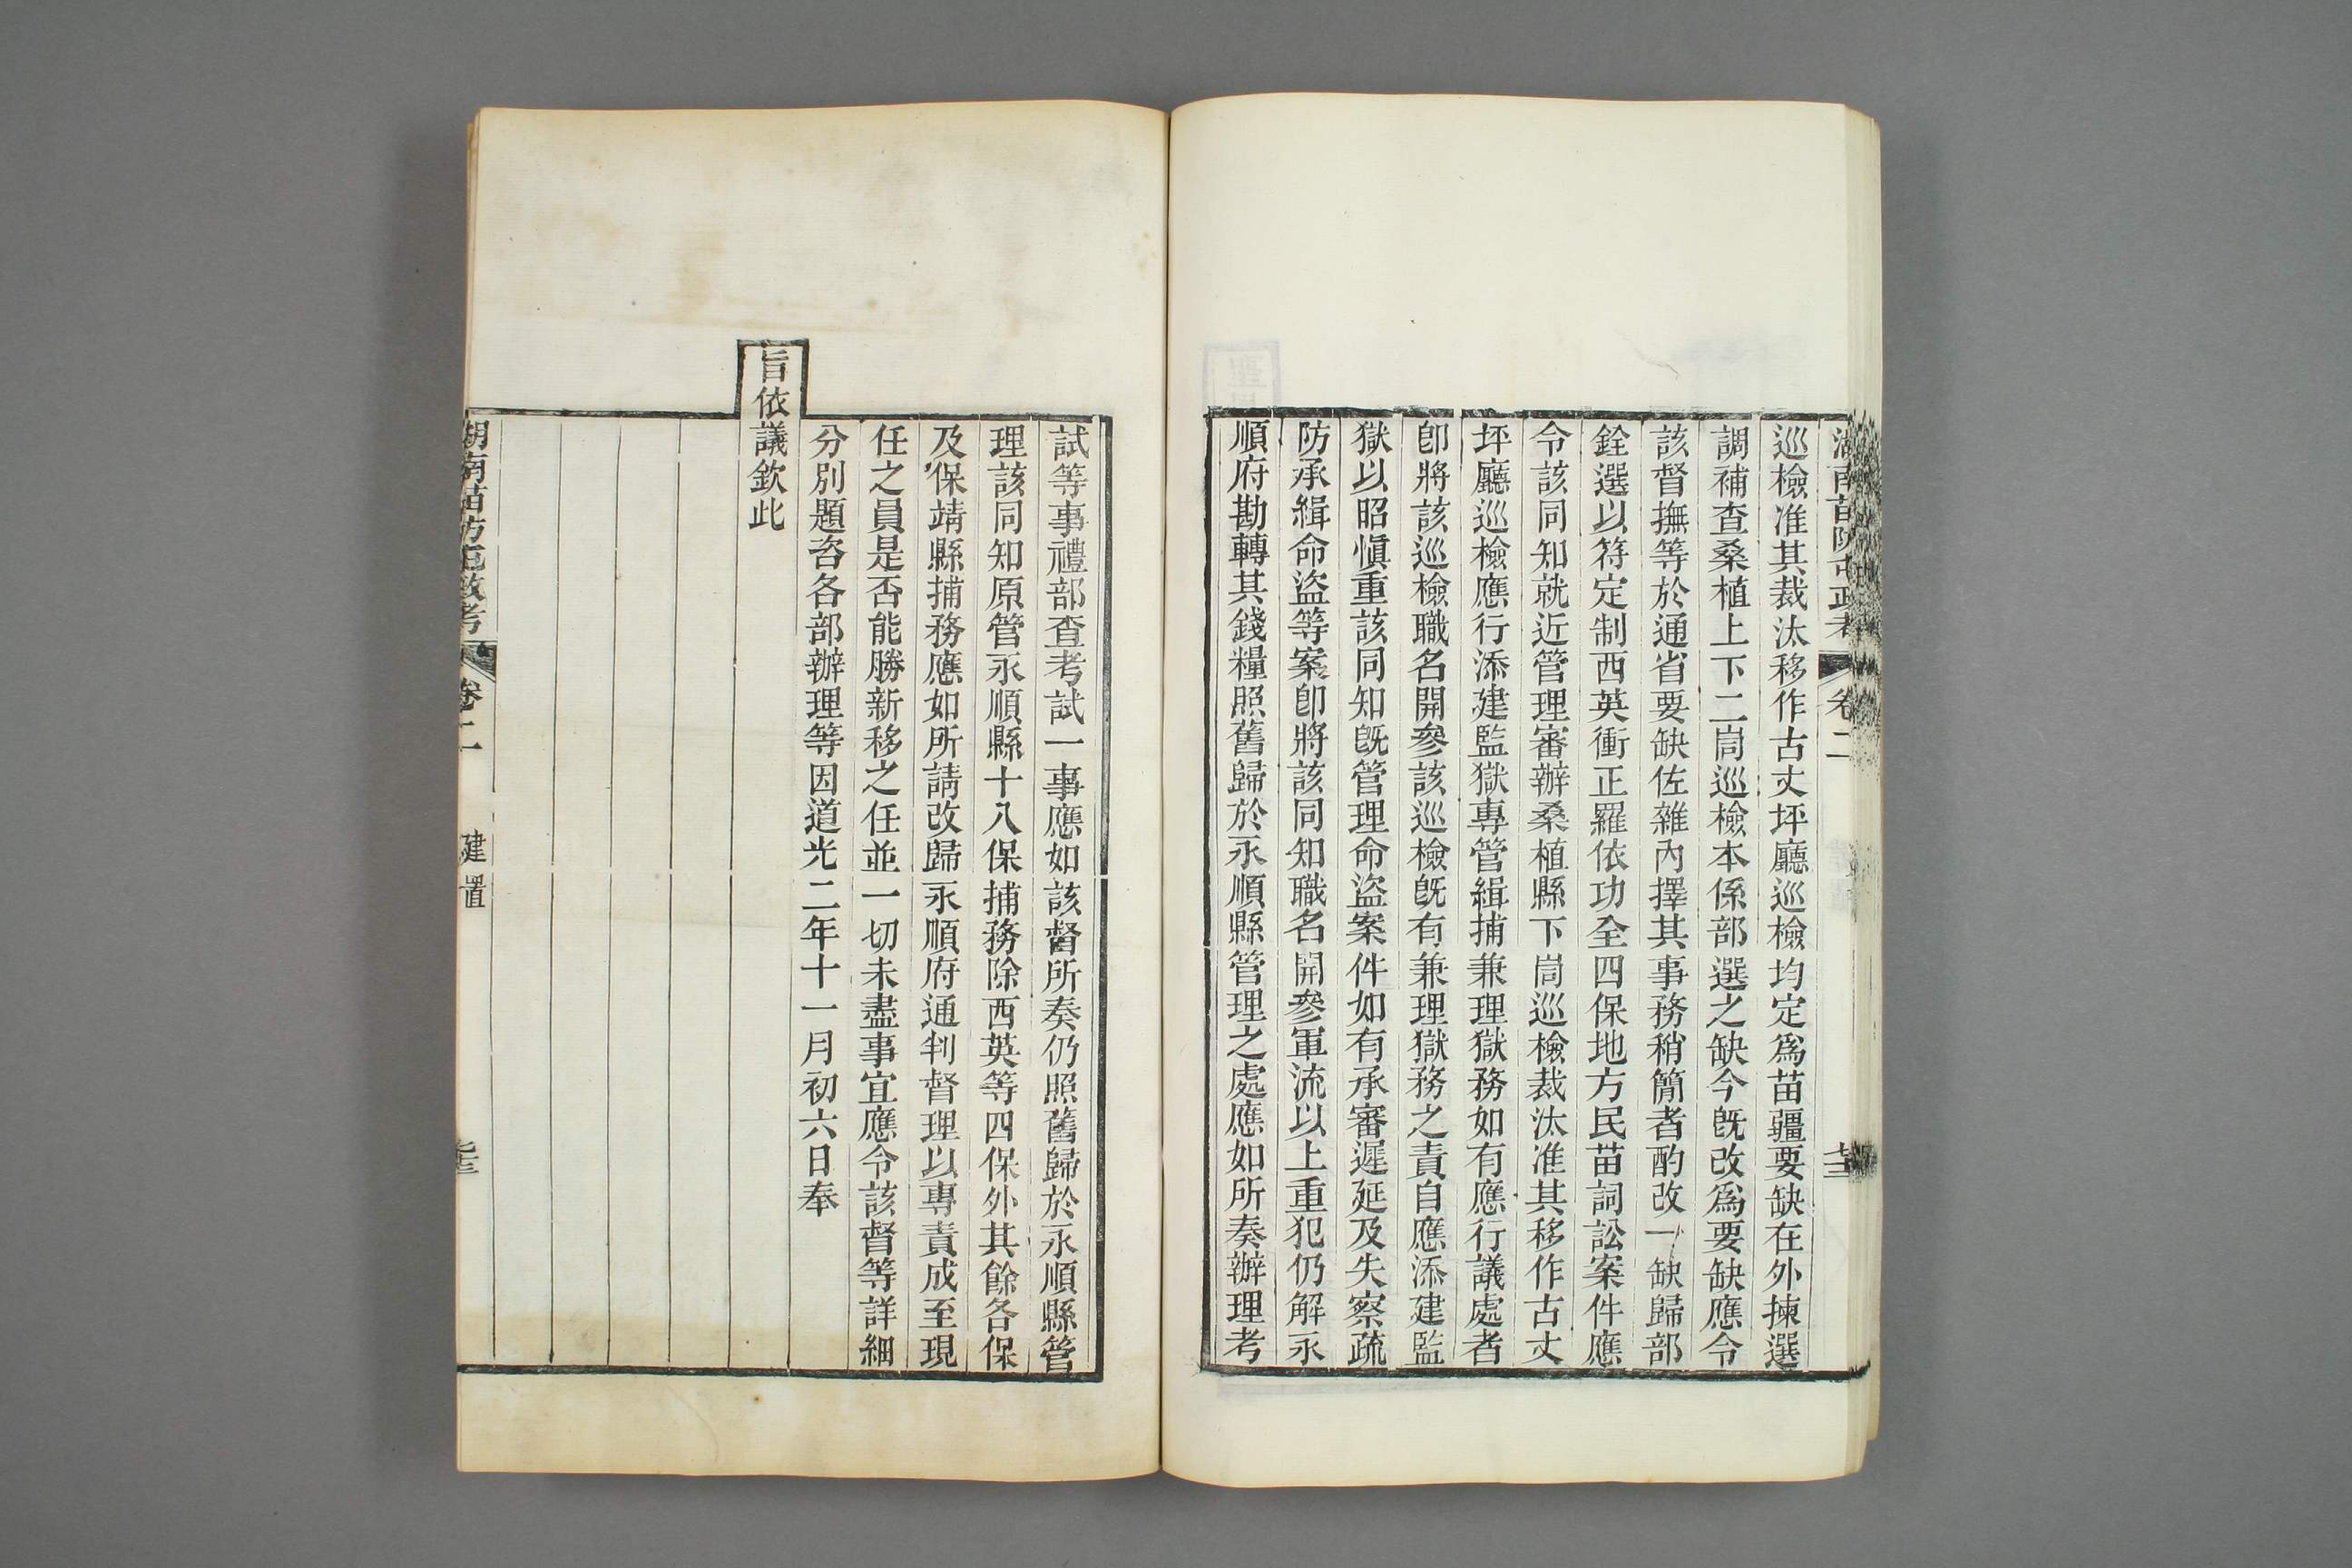 湖南苗防屯政考 卷二 七二
巡檢准其裁汰移作古丈坪廳巡檢均定爲苗疆要缺在外揀選
調補查桑植上下二峝巡檢本係部選之缺今旣改爲要缺應令
該督撫等於通省要缺佐雜內擇其事務稍簡者酌改一缺歸部
銓選以符定制西英衝正羅依功全四保地方民苗詞訟案件應
令該同知就近管理審辦桑植縣下峝巡檢裁汰准其移作古丈
坪廳巡檢應行添建監獄專管緝捕兼理獄務如有應行議處者
卽將該巡檢職名開參該巡檢旣有兼理獄務之責自應添建監
獄以昭愼重該同知旣管理命盜案件如有承審遲延及失察疏
防承緝命盜等案卽將該同知職名開參軍流以上重犯仍解永
順府勘轉其錢糧照舊歸於永順縣管理之處應如所奏辦理考
試等事禮部查考試一事應如該督所奏仍照舊歸於永順縣管
理該同知原管永順縣十八保捕務除西英等四保外其餘各保
及保靖縣捕務應如所請改歸永順府通判督理以專責成至現
任之員是否能勝新移之任並一切未盡事宜應令該督等詳細
分別題咨各部辦理等因道光二年十一月初六日奉
旨依議欽此
湖南苗防屯政考 卷二 建置 七三